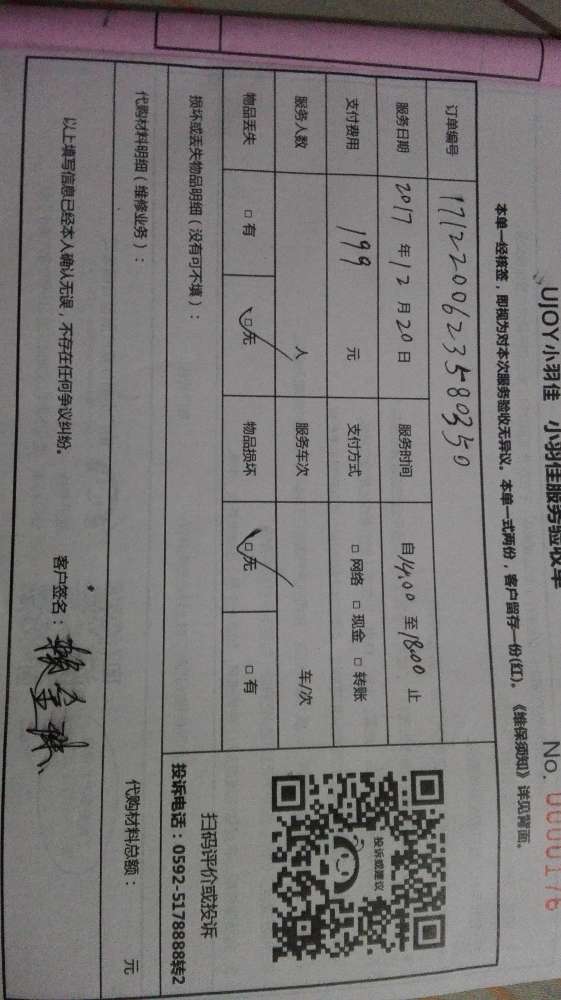 UJOY小羽佳 小羽佳服务验收单
No. 0000176
本单一经核签，即视为对本次服务验收无异议。本单一式两份，客户留存一份(红)。《维保须知》详见背面。
订单编号 17122006235580350
服务日期 2017 年 12 月 20 日 服务时间 自 14:00 至 18:00 止
支付费用 199 元 支付方式 □ 网络 □ 现金 □ 转账
服务人数 人 服务车次 车/次
物品丢失 □ 有 □ 无 物品损坏 □ 无 □ 有
投诉或建议
扫码评价或投诉
投诉电话：0592-5178888转2
损坏或丢失物品明细（没有可不填）：
代购材料明细（维修业务）： 代购材料总额： 元
以上填写信息已经本人确认无误，不存在任何争议纠纷。 客户签名：